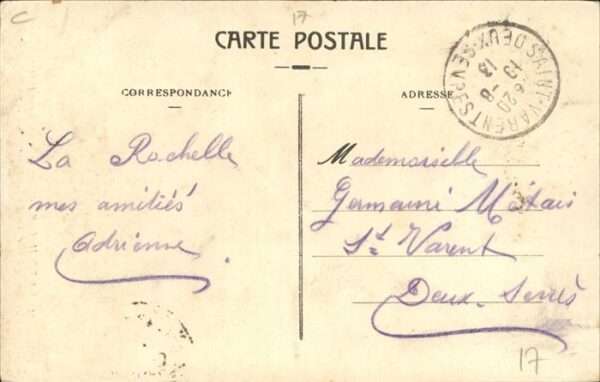 C
17
CARTE POSTALE
CORRESPONDANCE
ADRESSE
SAINT-VARENT DEUX-SEVRES
6 20
13 -8
13
La Rochelle
mes amitiés
Adrienne
Mademoiselle
Germaine Métais
St Varent
Deux-Sevres
17